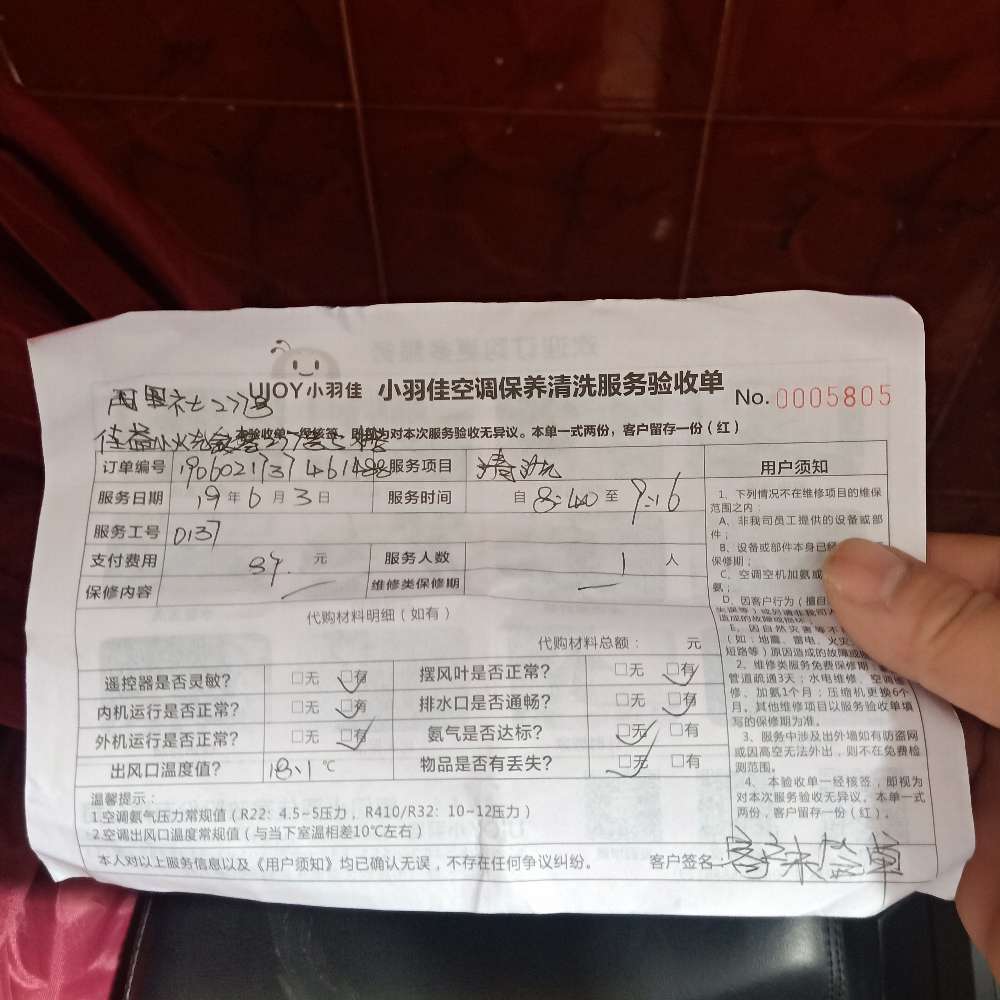 UJOY小羽佳 小羽佳空调保养清洗服务验收单 No. 0005805
本验收单一经核签，即视为对本次服务验收无异议。本单一式两份，客户留存一份（红）
订单编号 服务项目 清洗
服务日期 19年6月3日 服务时间 自8:40至9:16
服务工号 0137
支付费用 元 服务人数 1 人
保修内容 维修类保修期
代购材料明细（如有）
代购材料总额： 元
遥控器是否灵敏？ □无 □有 摆风叶是否正常？ □无 □有
内机运行是否正常？ □无 □有 排水口是否通畅？ □无 □有
外机运行是否正常？ □无 □有 氨气是否达标？ □无 □有
出风口温度值？ 18.1 ℃ 物品是否有丢失？ □无 □有
温馨提示：
1.空调氨气压力常规值（R22：4.5~5压力，R410/R32：10~12压力）
2.空调出风口温度常规值（与当下室温相差10℃左右）
本人对以上服务信息以及《用户须知》均已确认无误，不存在任何争议纠纷。 客户签名 客户未签单
用户须知
1、下列情况不在维修项目的维保
范围之内：
A、非我司员工提供的设备或部
件；
B、设备或部件本身已
保修期；
C、空调空机加氨或
氨；
D、因客户行为（擅自
造成的故障或损坏
E、因自然灾害等不
（如：地震、雷电、火灾
短路等）原因造成的故障或
2、维修类服务免费保修期
管道疏通3天；水电维修、空调维
修、加氨1个月；压缩机更换6个
月。其他维修项目以服务验收单填
写的保修期为准。
3、服务中涉及出外墙如有防盗网
或因高空无法外出，则不在免费检
测范围。
4、本验收单一经核签，即视为
对本次服务验收无异议。本单一式
两份，客户留存一份（红）。